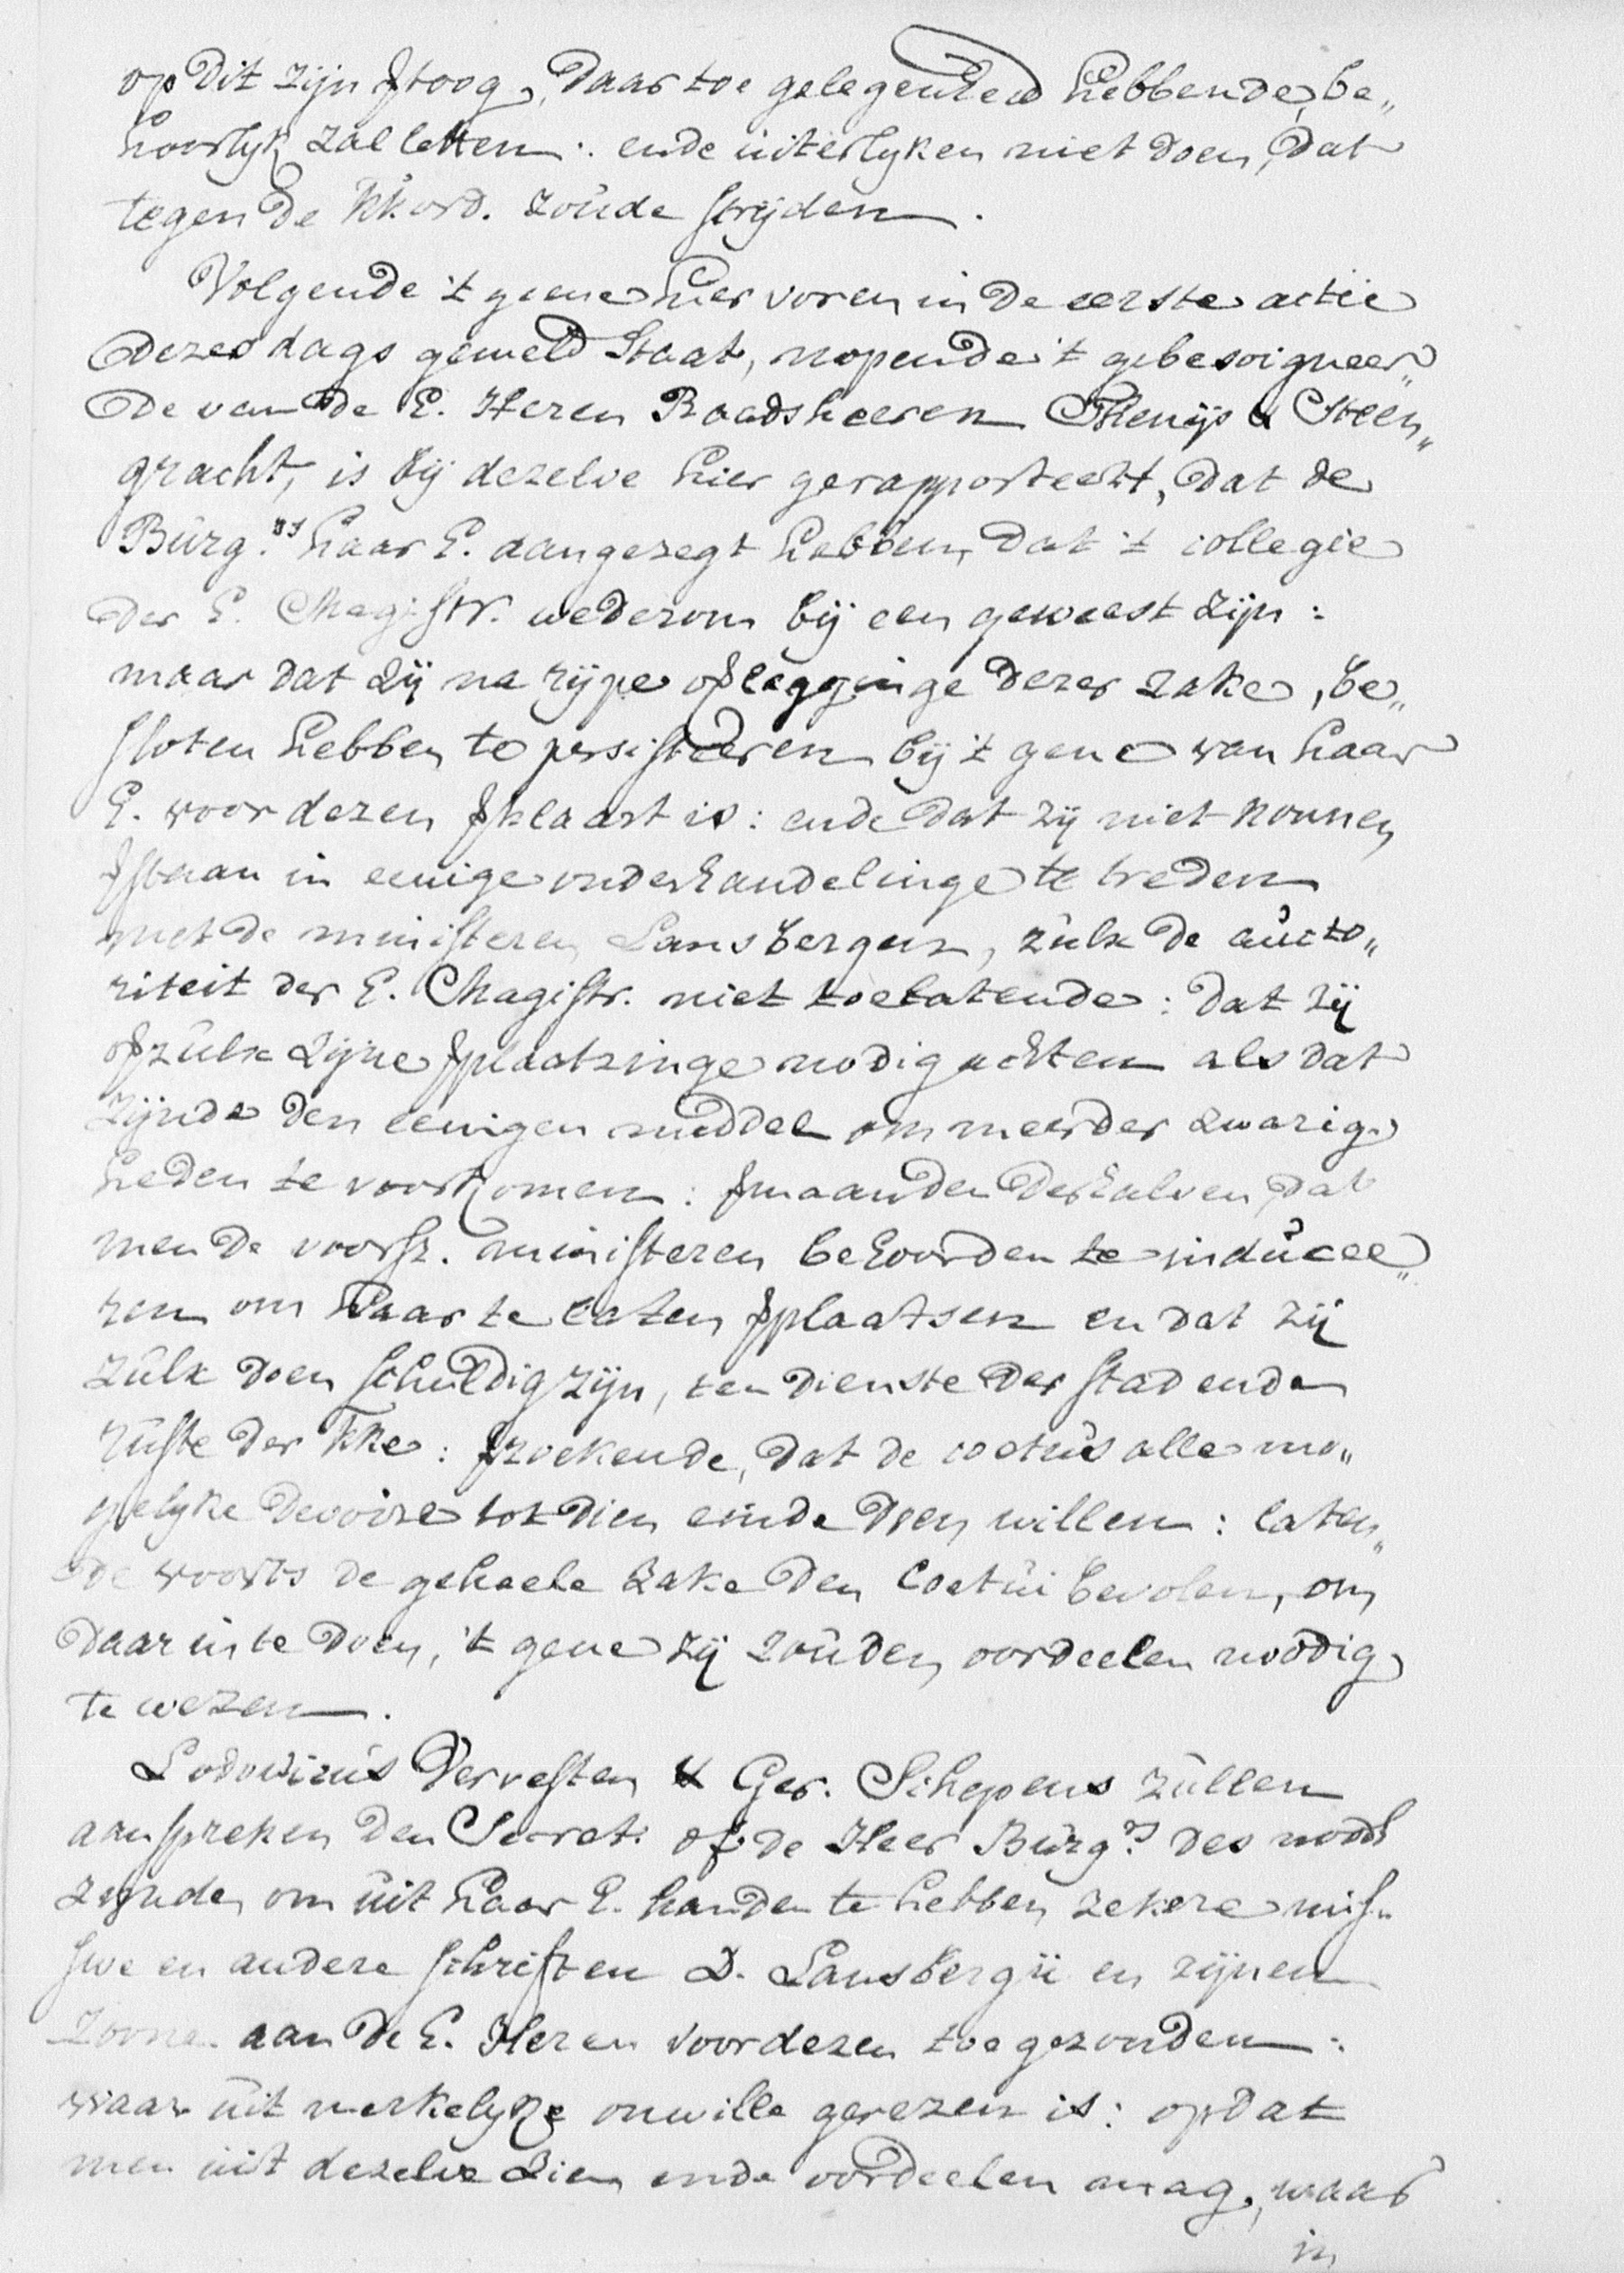 op dit zijn ℣toog, daar toe gelegenheid hebbende, be„
hoorlyk zal letten: ende uiterlyken niet doen, dat
tegen de KKord. zoude strijden.
Volgende 't geene hier voren in de eerste actie
dezes dags gemeld staat, nopende 't gebesoigneer„
de van de E. Heren Raadsheeren Thenijs & Steen„
gracht, is bij dezelve hier gerapporteert, dat de
Burg.rs haar E. aangezegt hebben, dat 't collegie
der E. Magistr. wederom bij een geweest zijn:
maar dat zij na rijpe oplegginge dezer zake, be„
sloten hebben te persisteeren bij 't gene van haar
E. voor dezen ℣klaart is: ende dat zij niet konnen
℣staan in eenige onderhandelinge te treden
met de ministeren Lansbergen, zulx de aucto„
riteit der E. Magistr. niet toelatende: dat zij
ofzulx zijne ℣plaatzinge nodig achten als dat
zijnde den eenigen middel om meerder zwarig„
heden te voorkomen: ℣maanden derhalven, dat
men de voorsz. ministeren behoorden te inducee„
ren om haar te laten ℣plaatsen en dat zij
zulx doen schuldig zijn, ten dienste der stad ende
ruste der KKe: ℣zoekende, dat de coetus alle mo„
gelyke devoire tot dien einde doen willen: laten„
de voorts de geheele zake den Coetui bevolen, om
daar in te doen, 't gene zij zouden oordeelen noodig
te wezen.
Lodovicus Dervesten & Ger. Schepens zullen
aanspreken den Secret. of de Heer Burg.rs des noods
zynde, om uit haar E. handen te hebben zekere mis„
sive en andere schriften D. Lansbergii en zijnen
zoone aan de E. Heren voor dezen toegezonden:
waar uit merkelyke onwille gerezen is: opdat
men uit dezelve zien ende oordeelen mag, waar
in